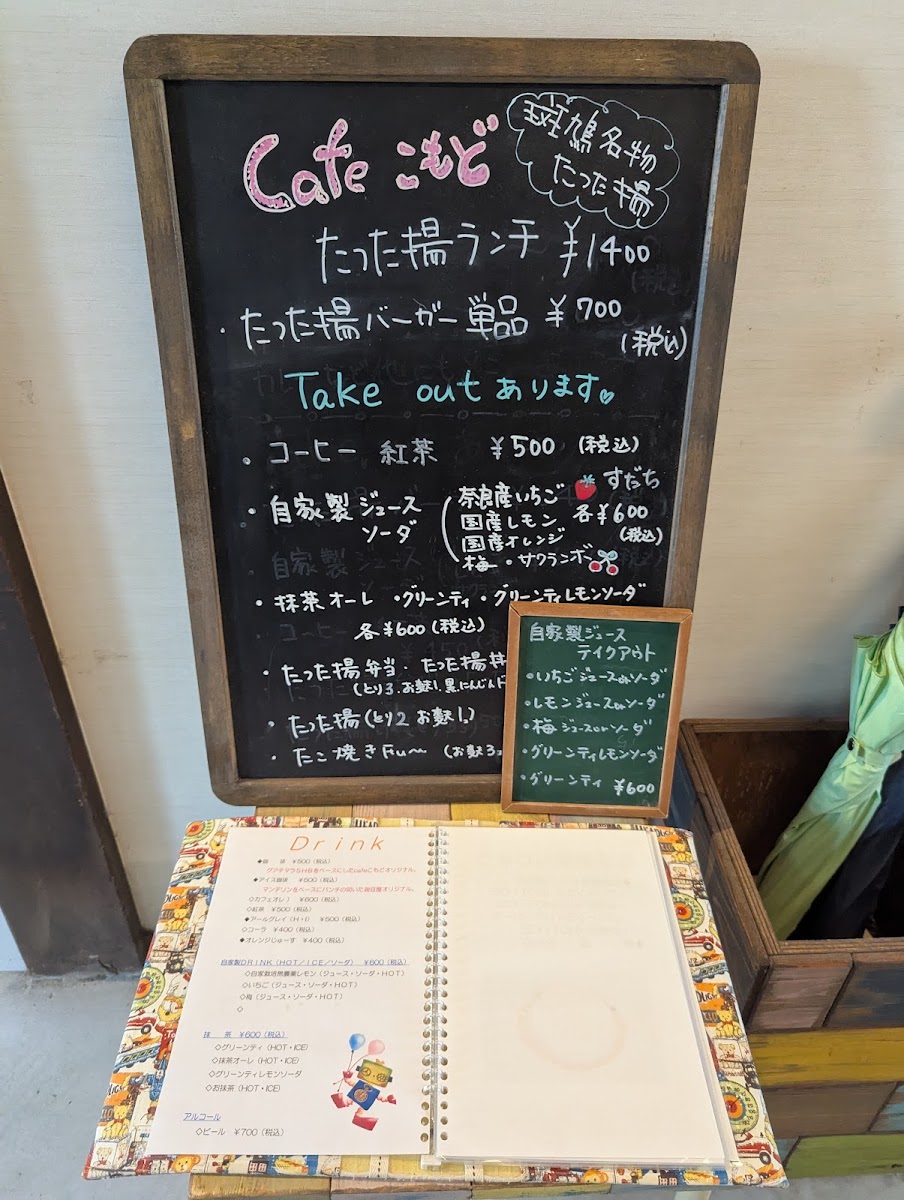 Cafe こもど
斑鳩名物
たった揚
たった揚ランチ ¥1400
・たった揚バーガー単品 ¥700
(税込)
Take out あります♡
・コーヒー 紅茶 ¥500 (税込)
・自家製ジュース
ソーダ
奈良産いちご すだち
国産レモン 各¥600
国産オレンジ (税込)
梅・サクランボ
・抹茶オーレ ・グリーンティ ・グリーンティレモンソーダ
各¥600(税込)
・たった揚弁当・たった揚丼
(とり3.お麩1.黒にんじん
・たった揚(とり2お麩1)
・たこ焼き (お麩3
自家製ジュース
テイクアウト
・いちごジュースorソーダ
・レモンジュースorソーダ
・梅ジュースorソーダ
・グリーンティレモンソーダ
・グリーンティ ¥600
Drink
◆珈 琲 ¥500(税込)
グアテマラSHBをベースにしたcafeこもどオリジナル。
◆アイス珈琲 ¥500(税込)
マンデリンをベースにパンチの効いた毎日屋オリジナル。
◇カフェオレ ¥600(税込)
◇紅茶 ¥500(税込)
◆アールグレイ(H・I) ¥500(税込)
◇コーラ ¥400(税込)
◆オレンジじゅーす ¥400(税込)
自家製DRINK(HOT/ICE/ソーダ) ¥600(税込)
◇自家栽培無農薬レモン(ジュース・ソーダ・HOT)
◇いちご(ジュース・ソーダ・HOT)
◇梅(ジュース・ソーダ・HOT)
◇
抹 茶 ¥600(税込)
◇グリーンティ(HOT・ICE)
◇抹茶オーレ(HOT・ICE)
◇グリーンティレモンソーダ
◇お抹茶(HOT・ICE)
アルコール
◇ビール ¥700(税込)